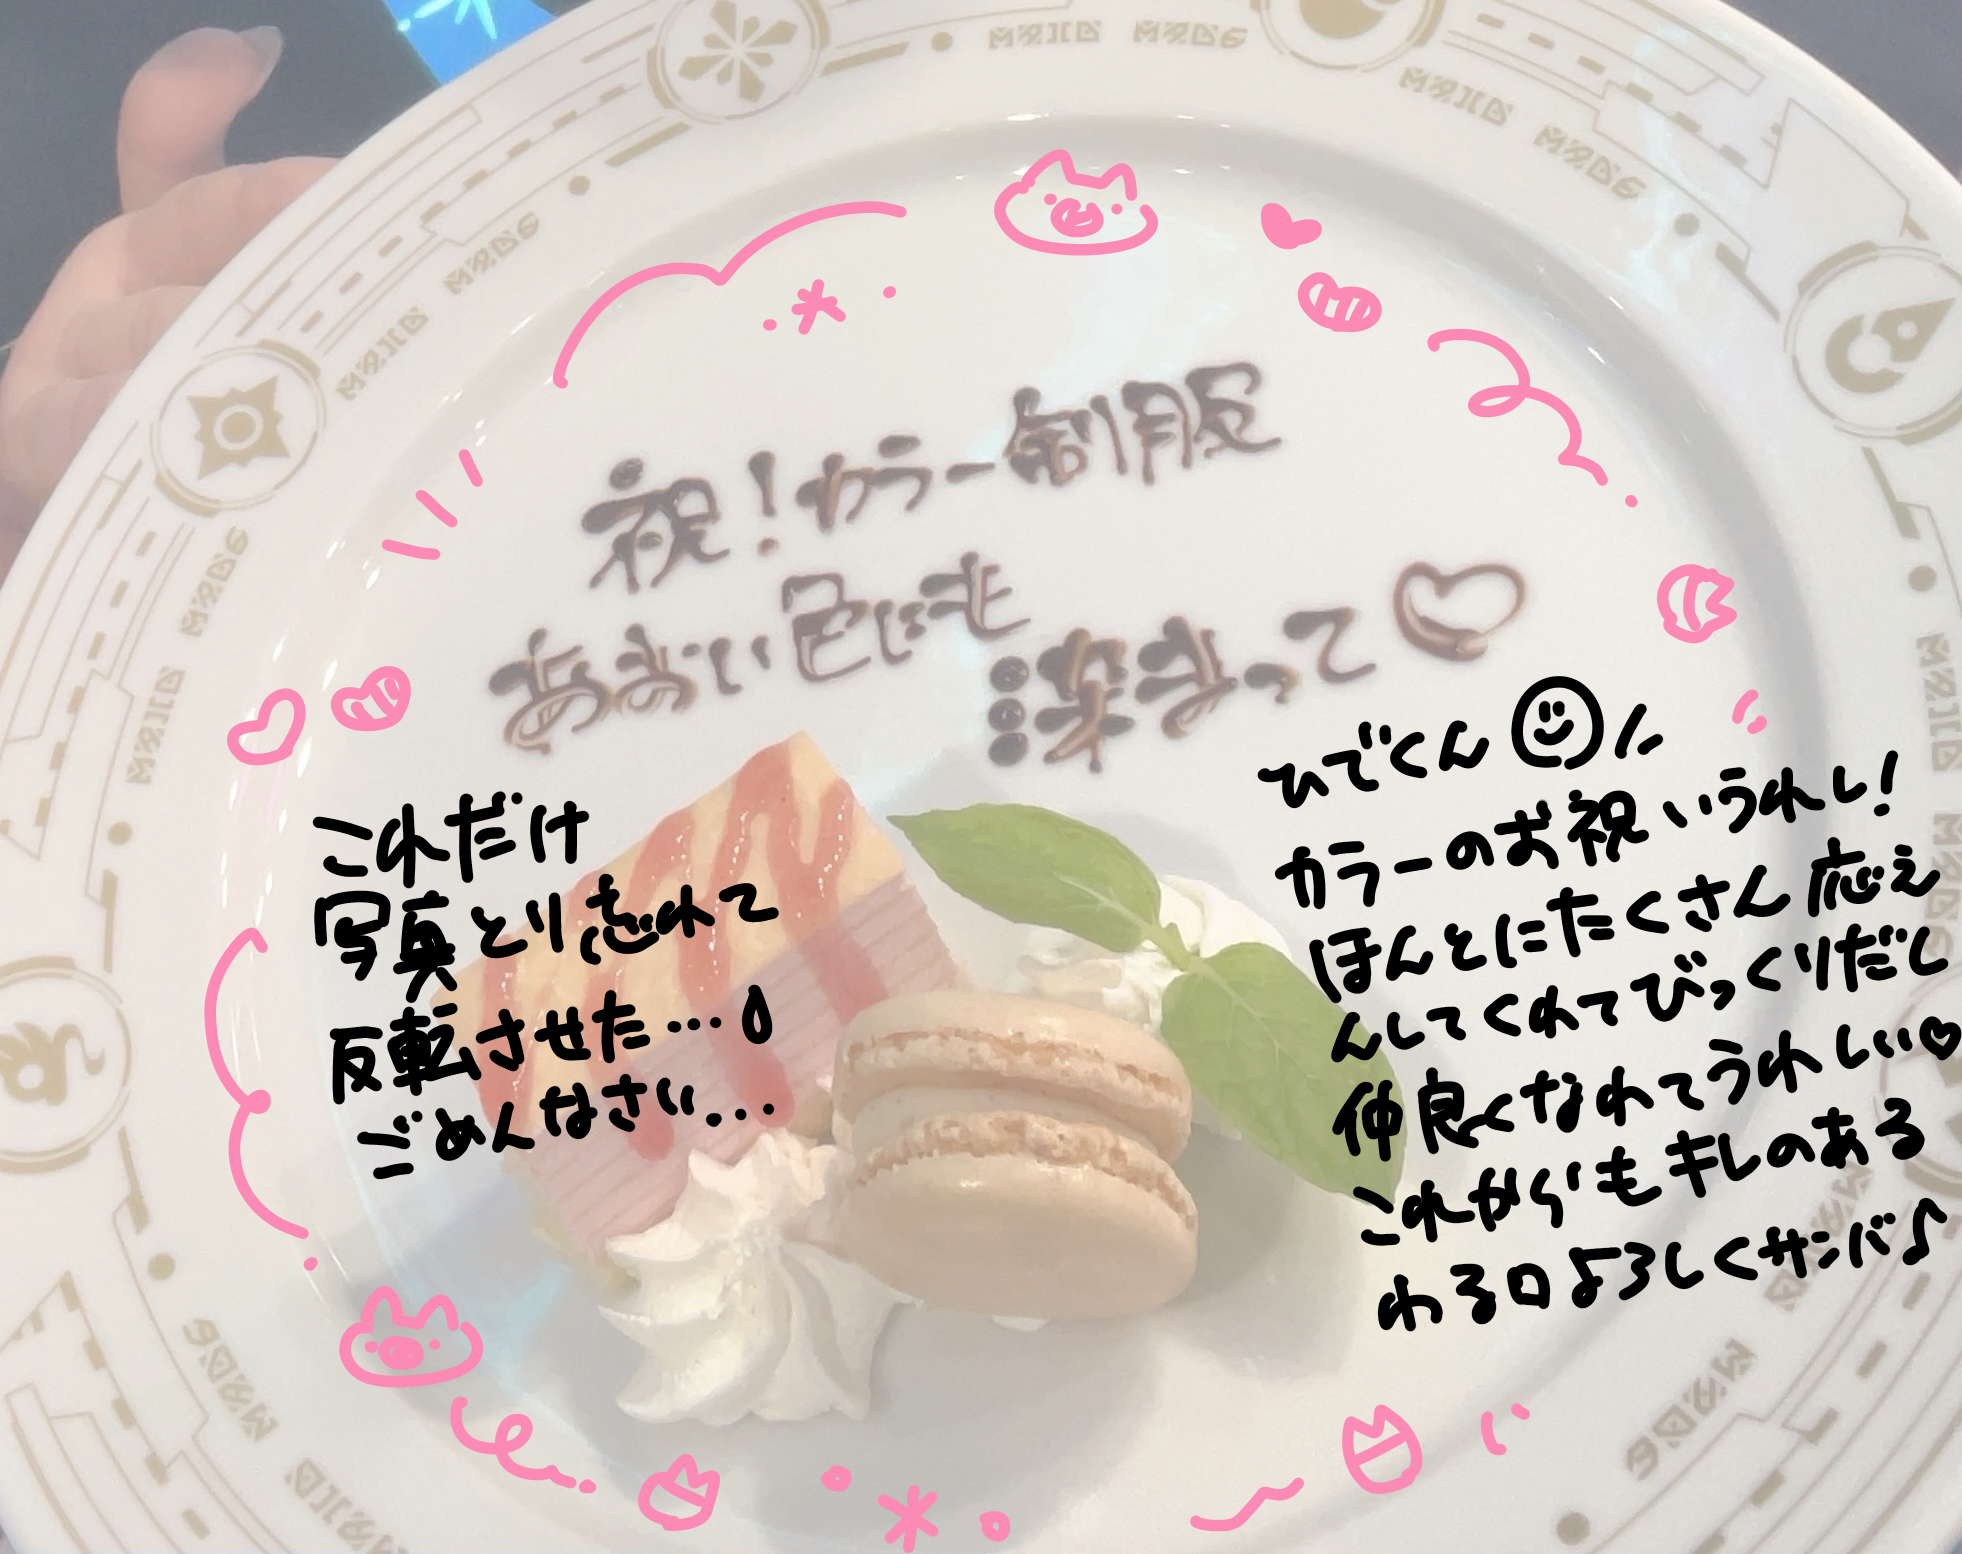 祝！カラー制服
あおい色にも
深まって♡
これだけ
写真とり忘れて
反転させた…
ごめんなさい…
ひでくん
カラーのお祝いうれし！
ほんとにたくさん応え
んしてくれてびっくりだし
仲良くなれてうれしい♡
これからもキレのある
わる口よろしくサンバ♪